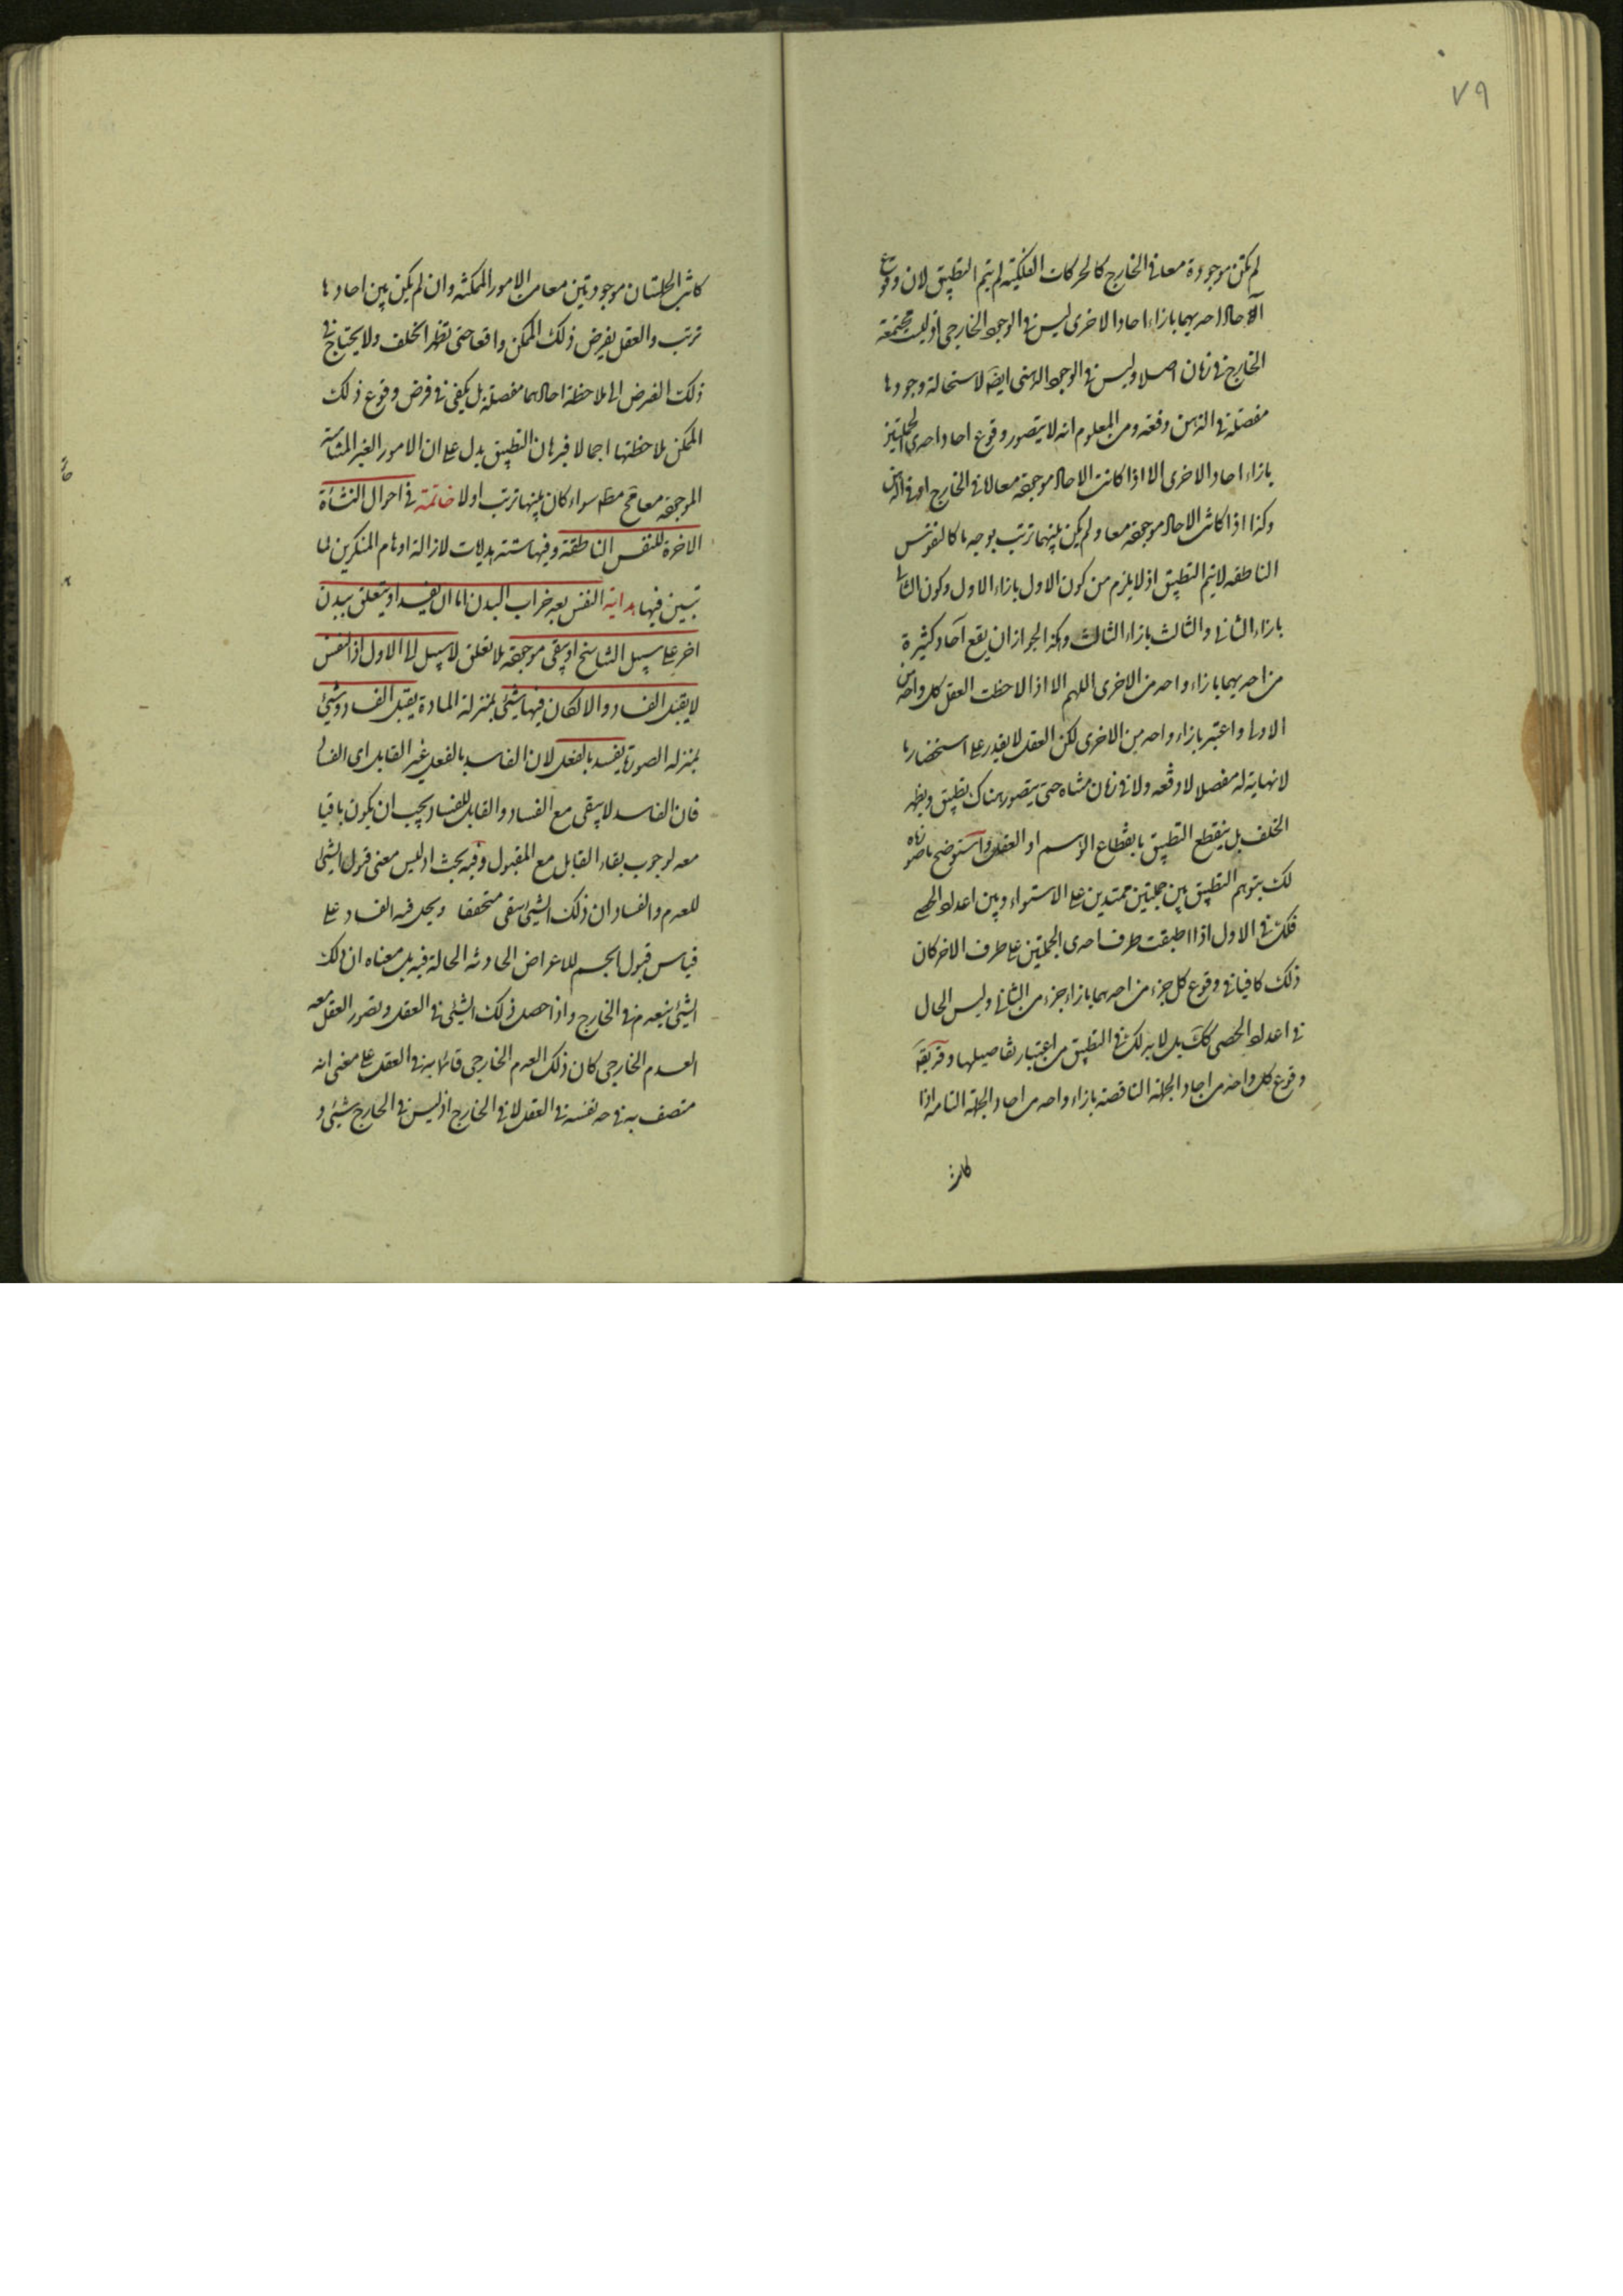 ٧٩
لم يكن موجودة معا فى الخارج كالحركات الفلكية لم يتم التطبيق لان وقوع
الآحاد احديهما بازاء احاد الاخرى ليس فى الوجود الخارجى اذ ليست مجتمعة
الخارج فى زمان اصلا وليس فى الوجود الذهنى ايضا لاستحالة وجودها
مفصلة فى الذهن دفعة ومن المعلوم انه لا يتصور وقوع احاد احدى الجملتين
بازاء احاد الاخرى الا اذا كانت الاحاد موجودة معا اما فى الخارج او فى الذهن
وكذا اذا كانت الاحاد موجودة معا ولم يكن بينهما ترتب بوجه ما كالنفوس
الناطقه لا يتم التطبيق اذ لا يلزم من كون الاول بازاء الاول وكون الثانى
بازاء الثانى والثالث بازاء الثالث وهكذا لجواز ان يقع آحاد كثيرة
من احديهما بازاء واحد من الاخرى اللهم الا اذا لاحظت العقل كل واحد من
الاولى واعتبر بازاء واحد من الاخرى لكن العقل لا يقدر على استحضار ما
لا نهاية له مفصلا لا دفعه ولا فى زمان متناه حتى يتصور هناك تطبيق ويظهر
الخلف بل ينقطع التطبيق بانقطاع الوهم او العقل واستوضح ما صورناه
لك بتوهم التطبيق بين جملتين ممتدين على الاستواء وبين اعداد الحصى
فلك فى الاول اذا اطبقت طرف احدى الجملتين على طرف الاخر كان
ذلك كافيا فى وقوع كل جزء من احديهما بازاء جزء من الثانى وليس الحال
فى اعداد الحصى كك بل لا بد لك فى التطبيق من اعتبار تفاصيلها
وقوع كل واحد من احاد الجملة الناقصة بازاء واحد من احاد الجملة التامه اذا
كانت
كانت الجملتان موجودتين معا من الامور الممكنة وان لم يكن بين احادها
ترتب والعقل يفرض ذلك الممكن واقعا حتى يظهر الخلف ولا يحتاج فى
ذلك الفرض الى ملاحظة احادهما مفصلة بل يكفى فى فرض وقوع ذلك
الممكن ملاحظتها اجمالا فبرهان التطبيق يدل على ان الامور الغير المتناهية
الموجودة معا مح مطلقا سواء كان بينها ترتب اولا خاتمة فى احوال النشأة
الاخرة للنفس الناطقة وفيها ستة هدايات لازالة اوهام المنكرين لما
تبين فيها هداية النفس بعد خراب البدن اما ان يفسد او يتعلق ببدن
اخر على سبيل التناسخ او يبقى موجودة بلا تعلق لا سبيل الى الاول اذ النفس
لا يقبل الفساد والا لكان فيها شئ بمنزلة المادة يقبل الفساد وشئ
بمنزله الصورة يفسد بالفعل لان الفاسد بالفعل غير القابل اى الفساد
فان الفاسد لا يبقى مع الفساد والقابل للفساد يجب ان يكون باقيا
معه لوجوب بقاء القابل مع المقبول وفيه بحث اذ ليس معنى قبول الشئ
للعدم والفساد ان ذلك الشئ يبقى متحققا ويحل فيه الفساد على
قياس قبول الجسم للاعراض الحادثه الحالة فيه بل معناه ان ذلك
الشئ ينعدم فى الخارج واذا حصل ذلك الشئ فى العقل وتصور العقل معه
العدم الخارجى كان ذلك العدم الخارجى قائما به فى العقل على معنى انه
متصف به فى حد نفسه فى العقل لا فى الخارج اذ ليس فى الخارج شئ و